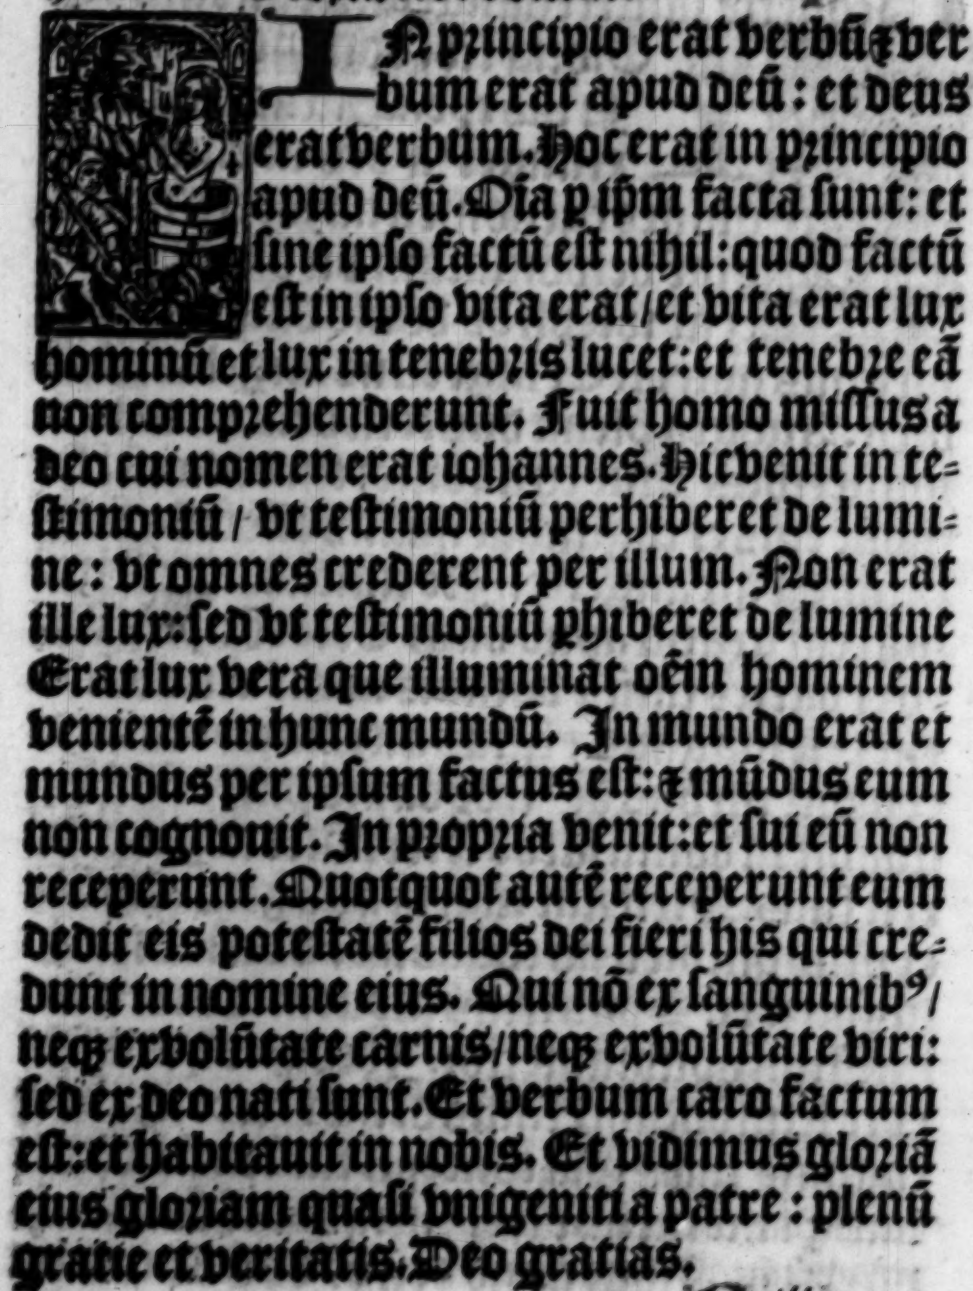 IN principio erat verbū ⁊ ver
bum erat apud deū : et deus
erat verbum. Hoc erat in principio
apud deū. Oīa ꝑ ip̄m facta sunt: et
sine ipso factū est nihil: quod factū
est in ipso vita erat / et vita erat lux
hominū et lux in tenebris lucet: et tenebre eā
non comprehenderunt. Fuit homo missus a
deo cui nomen erat iohannes. Hic venit in te-
stimoniū / vt testimoniū perhiberet de lumi-
ne : vt omnes crederent per illum. Non erat
ille lux: sed vt testimoniū ꝑhiberet de lumine
Erat lux vera que illuminat oēm hominem
venientē in hunc mundū. In mundo erat et
mundus per ipsum factus est: ⁊ mūdus eum
non cognouit. In propria venit: et sui eū non
receperunt. Quotquot autē receperunt eum
dedit eis potestatē filios dei fieri his qui cre-
dunt in nomine eius. Qui nō ex sanguinibꝰ /
neqꝫ ex volūtate carnis / neqꝫ ex volūtate viri:
sed ex deo nati sunt. Et verbum caro factum
est: et habitauit in nobis. Et vidimus gloriā
eius gloriam quasi vnigeniti a patre : plenū
gratie et veritatis. Deo gratias.